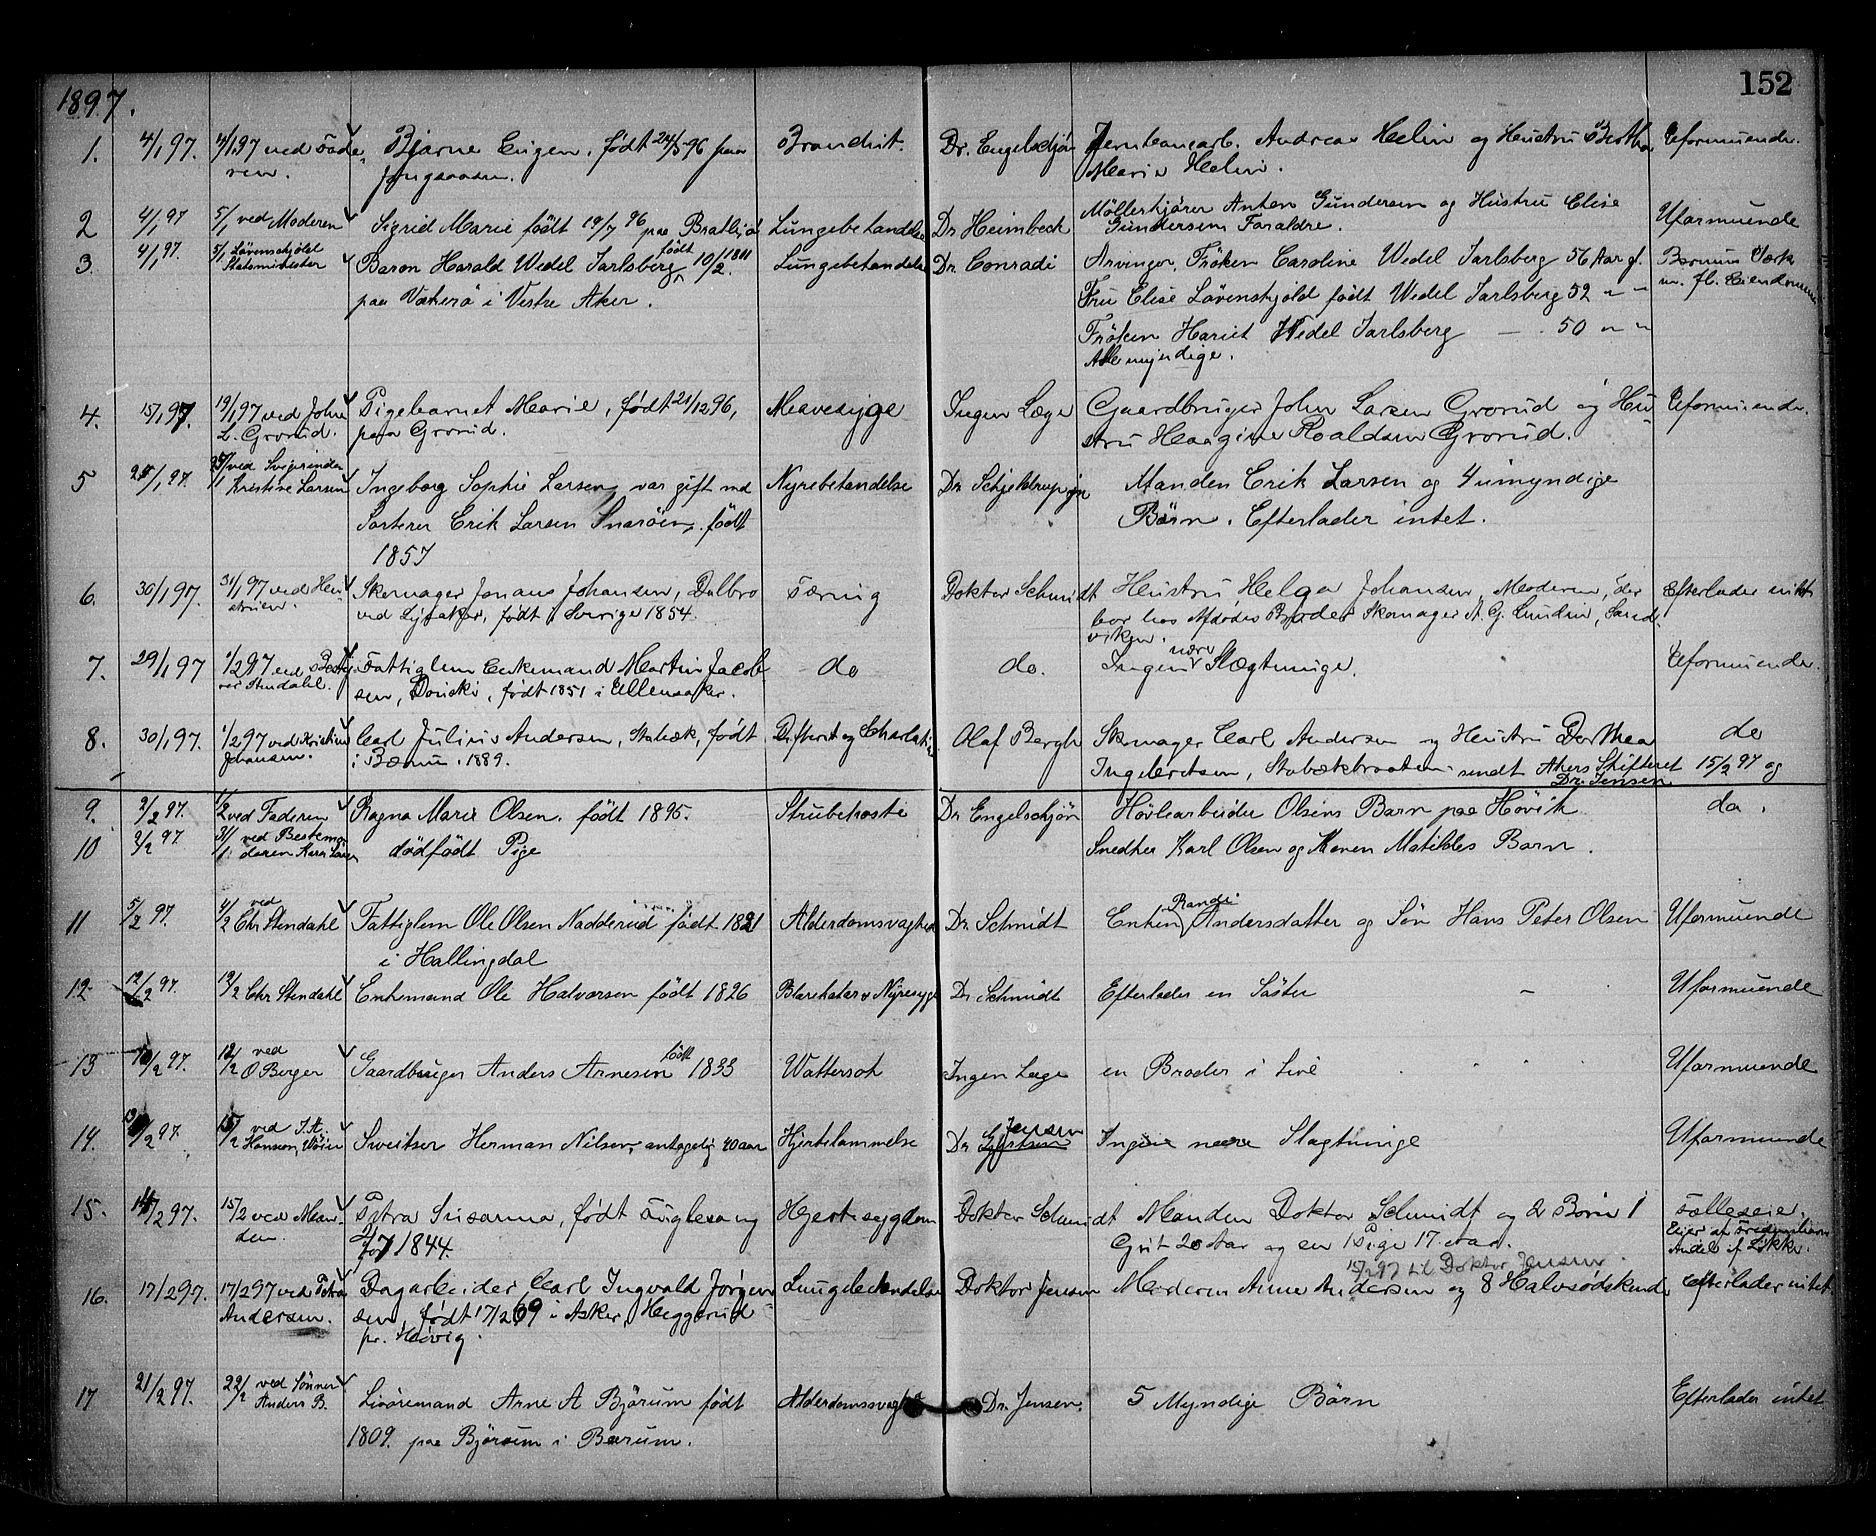 1897.
152
1. 4/1 97. 4/1 97 ved Fade- Bjarne Eugen, født 24/5 96 paa Brandsit. Dr. Engelschjøn Jernbanearb. Andreas Helin og Hustru Bertha Uformuende.
ren. Jongsaasen. Marie Helin.
2 4/1 97 5/1 ved Moderen Sigrid Marie født 19/7 96 paa Lungebetændelse Dr Heimbeck Møllerkjører Anton Gundersen og Hustru Elise Uformuende
Gundersen Forældre.
3. 4/1 97. 5/1 Løvenskjold Baron Harald Wedel Jarlsberg født 10/2 1811 Lungebetændelse Dr Conradi Arvinger, Frøken Caroline Wedel Jarlsberg 56 Aar gl. Bærums Værk
Statsminister paa Vækerø i Vestre Aker. Fru Elise Løvenskjold født Wedel Jarlsberg 52 " " m. fl. Eiendomme
Frøken Hariet Wedel Jarlsberg — . 50 " "
Alle myndige.
4. 15/1 97. 19/1 97 ved John Pigebarnet Marie, født 21/12 96, Mavesyge Ingen Læge Gaardbruger John Larsen Grorud og Hu- Uformuende.
L. Grorud. paa Grorud. stru Haagine Roaldsen Grorud.
5 25/1 97. 25/1 ved Svigerinden Ingeborg Sophie Larsen var gift md Nyrebetændelse Dr. Schjeldrup Manden Erik Larsen og 4 umyndige
Kristine Larsen Sorterer Erik Larsen Snarøen, født Børn. Efterlader intet.
1857
6. 30/1 97. 31/1 97 ved Hu- Skomager Jonas Johansen, Dalbro Tæring Doktor Schmidt Hustru Helga Johansen, Moderen, der Efterlader intet
struen. ved Lysaker, født i Sverige 1854. bor hos Afdødes Broder Skomager A. G. Lundin, Sand-
viken.
7. 29/1 97 1/2 97 ved Besty- Fattiglem Enkemand Martin Jacob- do do. Ingen nære Slægtninge. Uformuende.
rer Stendahl. sen, Dønski, født 1851 i Ullensaker.
8. 30/1 97. 1/2 97 ved Kristine Carl Julius Andersen, Stabæk, født Difterit og Olaf Bergh Skomager Carl Andersen og Hustru Dorthea do
Johansen. i Bærum 1889. Ingebretsen, Stabækbraaten sendt Akers Skifteret 15/2 97 og
Dr. Jensen
9. 2/2 97. 1/2 ved Faderen Ragna Marie Olsen, født 1895. Strubehoste Dr Engelschjøn Høvlearbeider Olsens Barn paa Høvik do.
10 2/2 97 3/1 ved Bestemo- dødfødt Pige Snedker Karl Olsen og Karen Matildes Barn.
deren Karen Larsen
11 5/2 97. 4/2 ved Chr Stendahl Fattiglem Ole Olsen Nadderud født 1821 Alderdomsvaghed Dr. Schmidt Enken Randi Andersdatter og Søn Hans Peter Olsen Uformuende
i Hallingdal
12 12/2 97. 12/2 Chr Stendahl Enkemand Ole Halvorsen født 1826 Blærekatar & Nyresyge Dr Schmidt Efterlader en Søster – Uformuende
13 10/2 97. 12/2 ved O Berger Gaardbruger Anders Arnesen født 1833 Wattersot Ingen Læge en Broder i Live Uformuende
14. 13/2 97. 15/2 ved J. A. Sweitser Herman Nilsen, antagelig 40 aar Hjertelammelse Dr. Jensen Ingen nære Slagtninge Uformuende
Hanson,
15. 14/2 97. 15/2 ved Man- Petra Susanna, født Fuglesang Hjertesygdom Doktor Schmidt Manden Doktor Schmidt og 2 Børn 1 Fælleseie.
den. 1844. Gut 20 Aar og en Pige 17 Aar. Eier af
15/2 97 til Doktor Jensen
16. 17/2 97. 17/2 97 ved Petra Dagarbeider Carl Ingvald Jørgen- Lungebetændelse Doktor Jensen Moderen Anne Andersen og 8 Halvsødskende Efterlader intet
Andersen. sen, født 17/2 69 i Asker, Heggerud
pr. Høvig.
17 21/2 97. 22/2 ved Sønnen Livøremand Arne A Bjørum født Alderdomsvaghed Dr. Jensen. 5 Myndige Børn Efterlader intet
Anders B. 1809. paa Bjørum i Bærum.